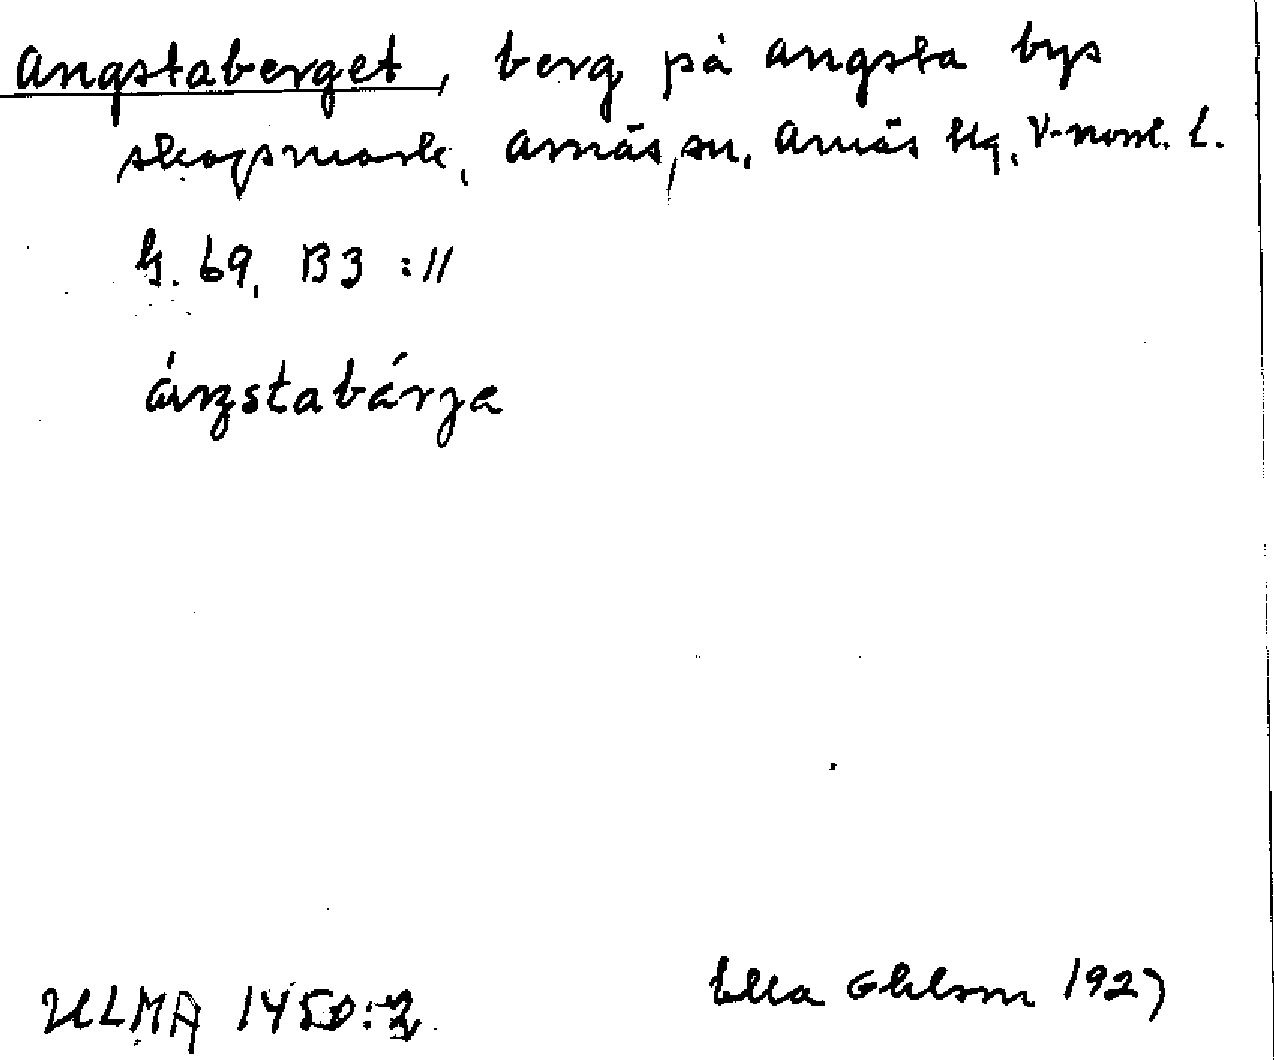 Angstaberget, berg på Angsta bys
skogsmark, Arnäs sn, Arnäs tlg, V-norrl. L.
G. 69, B3 :11
áŋstabárja
ULMA 1450:2
Ella Ohlson 1927